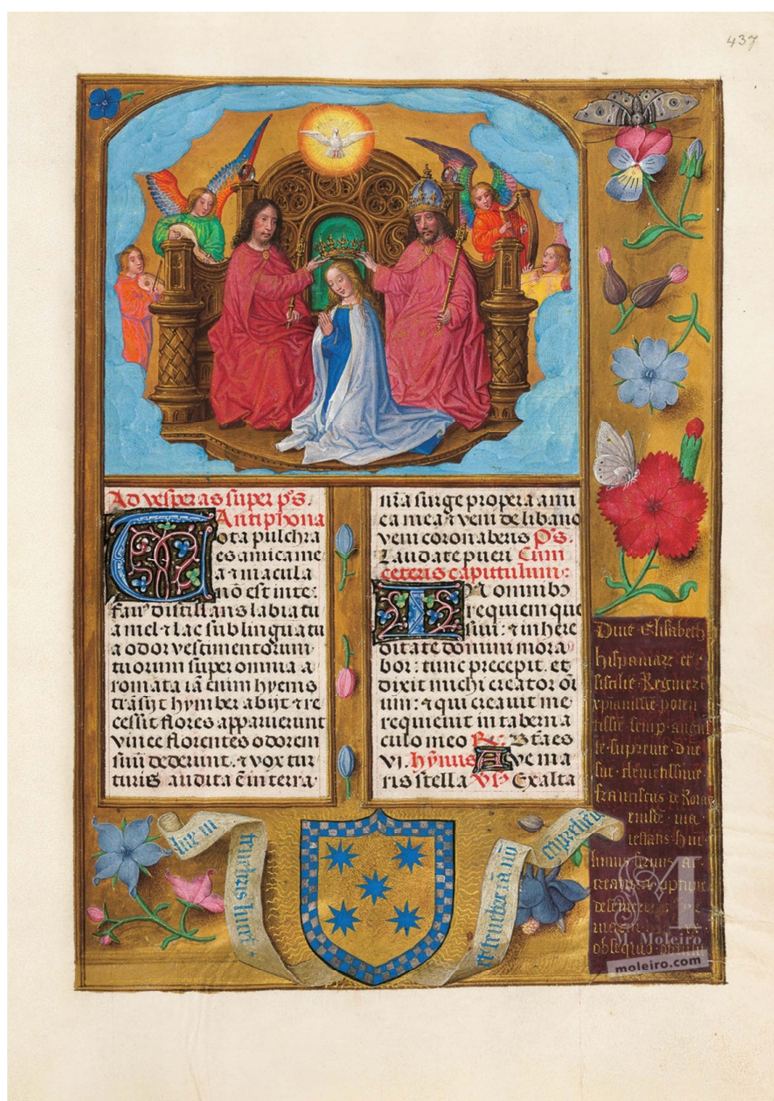 437
Ad vesperas super p̄s.
Antiphona
Tota pulchra
es amica me
a ⁊ macula
nō est in te:
fau⁹ distillans labia tu
a mel ⁊ lac sub lingua tu
a odor vestimentorum
tuorum super omnia a
romata iā enim hyems
trāsijt hymber abijt ⁊ re
cessit flores apparuerunt
vinee florentes odorem
suū dederunt. ⁊ vox tur
turis audita ē in terra.
nr̄a surge propera ami
ca mea ⁊ veni de libano
veni coronaberis P̄s.
Laudate pueri Cum
ceteris capittulum:
IN omnibꝫ
requiem que
siui: ⁊ in here
ditate domini mora
bor: tunc precepit. et
dixit michi creator oī
um: ⁊ qui creauit me
requieuit in taberna
culo meo R̄. Btāes
VI. hȳnus Ave ma
ris stella Vs Exalta
Diue Elisabeth
hispaniaꝝ et
siscilie Regine
xpianissīe poten
tissīe semp. augus
te. supreme. Dn̄e
sue. clemētissime.
franciscus de Roias
eiusdē. ma
iestatis. hu
limus seruus. ac
creatura. optime
obsequio
lux in
tenebris lucet.
et tenebre eā nō
cōprehēder
Moleiro
moleiro.com